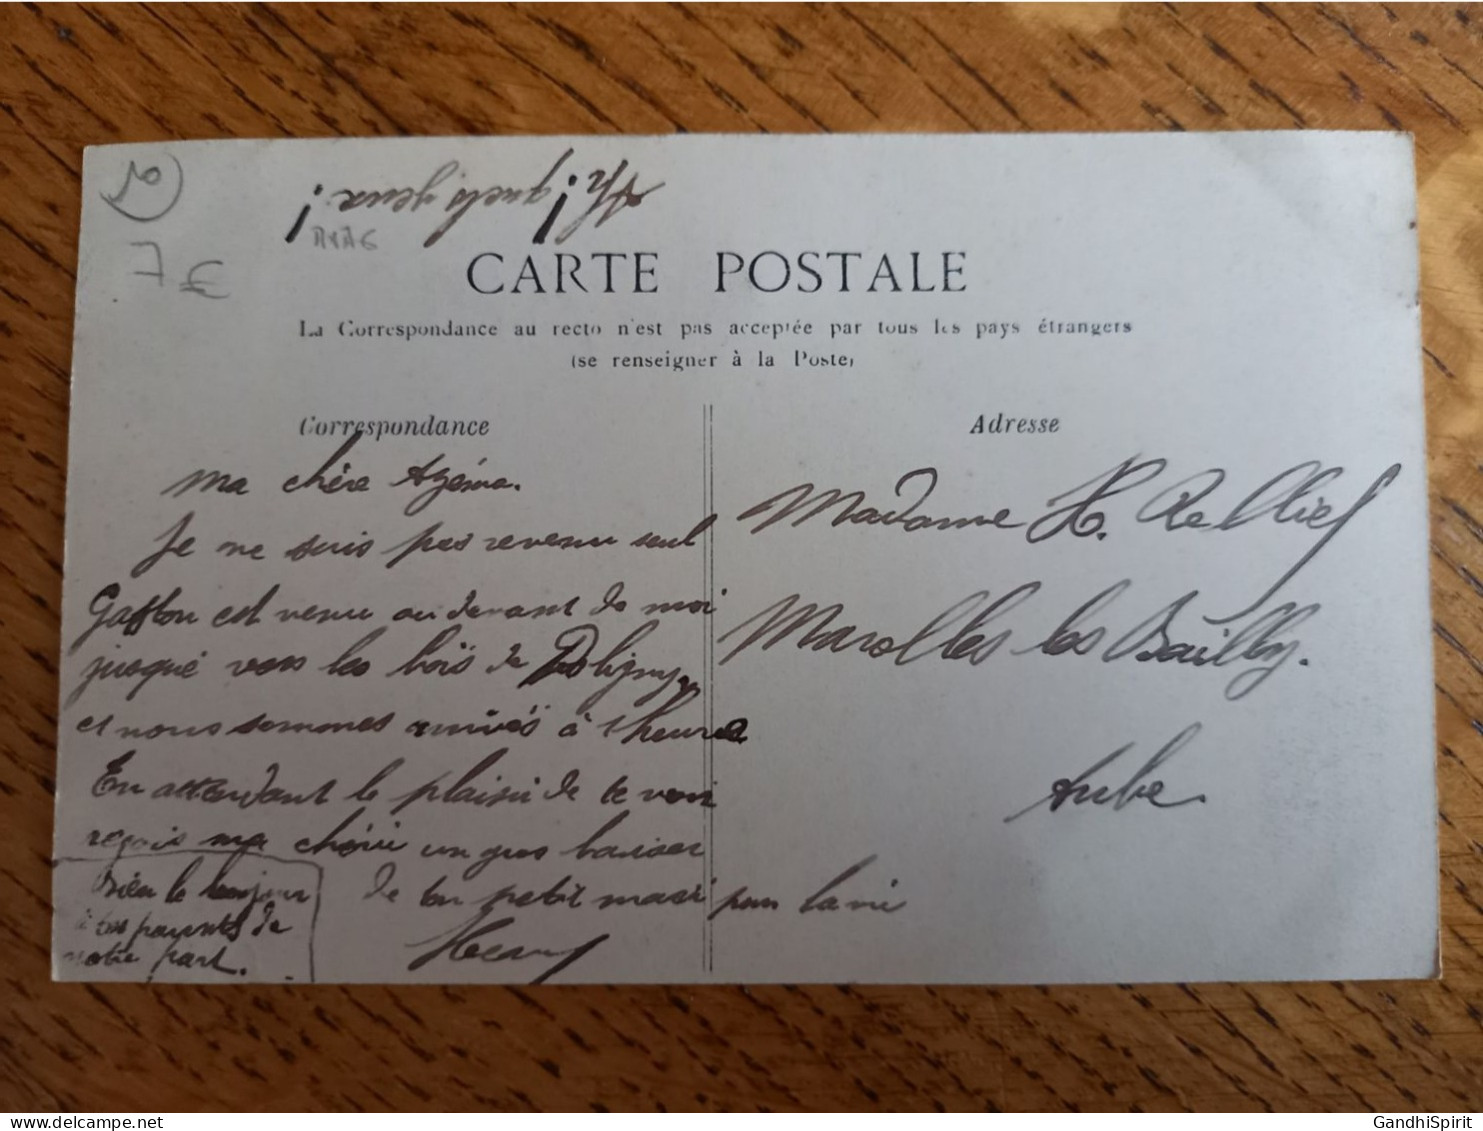 10
7 €
Ah! quels yeux!!
CARTE POSTALE
La Correspondance au recto n'est pas acceptée par tous les pays étrangers
(se renseigner à la Poste)
Correspondance
ma chère Azéma.
Je ne suis pas revenu seul
Gaston est venu au devant de moi
jusque vers les bois de Doligny,
et nous sommes arrivés à 1 heure
En attendant le plaisir de te voir
reçois ma chérie un gros baiser
de ton petit mari pour la vie
Henry
Bien le bonjour
à tes parents de
notre part.
Adresse
Madame H. Relliel
Marolles les Bailly.
Aube.
GandhiSpirit